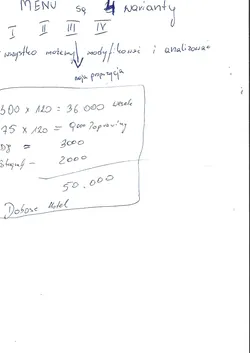 MENU są 4 warianty
I II III IV
wszystko możemy modyfikować i analizować
moja propozycja
300 x 120 = 36 000 wesele
75 x 120 = 9000 Poprawiny
DJ = 3000
2000
50.000
Dobose Hotel